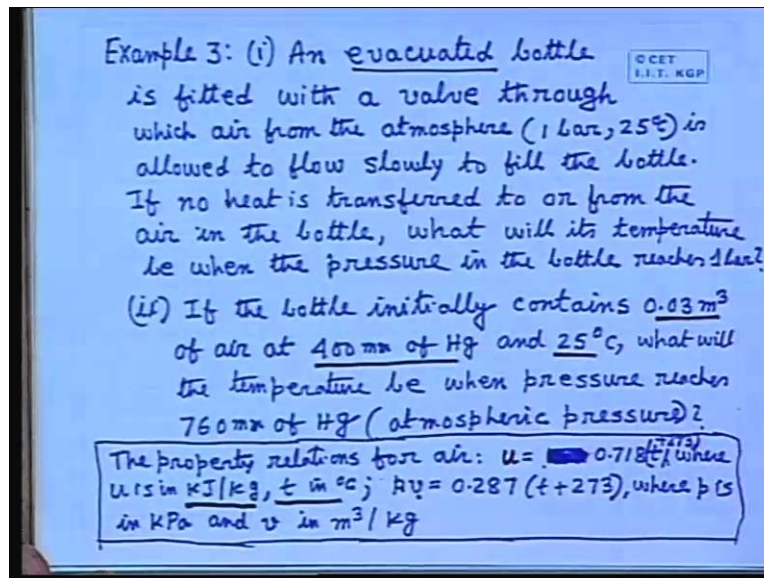 Example 3: (i) An evacuated bottle
© CET
I.I.T. KGP
is fitted with a valve through
which air from the atmosphere (1 bar, 25°C) is
allowed to flow slowly to fill the bottle.
If no heat is transferred to or from the
air in the bottle, what will its temperature
be when the pressure in the bottle reaches 1 bar?
(ii) If the bottle initially contains 0.03 m³
of air at 400 mm of Hg and 25°C, what will
the temperature be when pressure reaches
760 mm of Hg (atmospheric pressure)?
The property relations for air: u = 0.718(t+273), where
u is in kJ/kg, t in °C; pv = 0.287 (t+273), where p is
in kPa and v in m³/kg